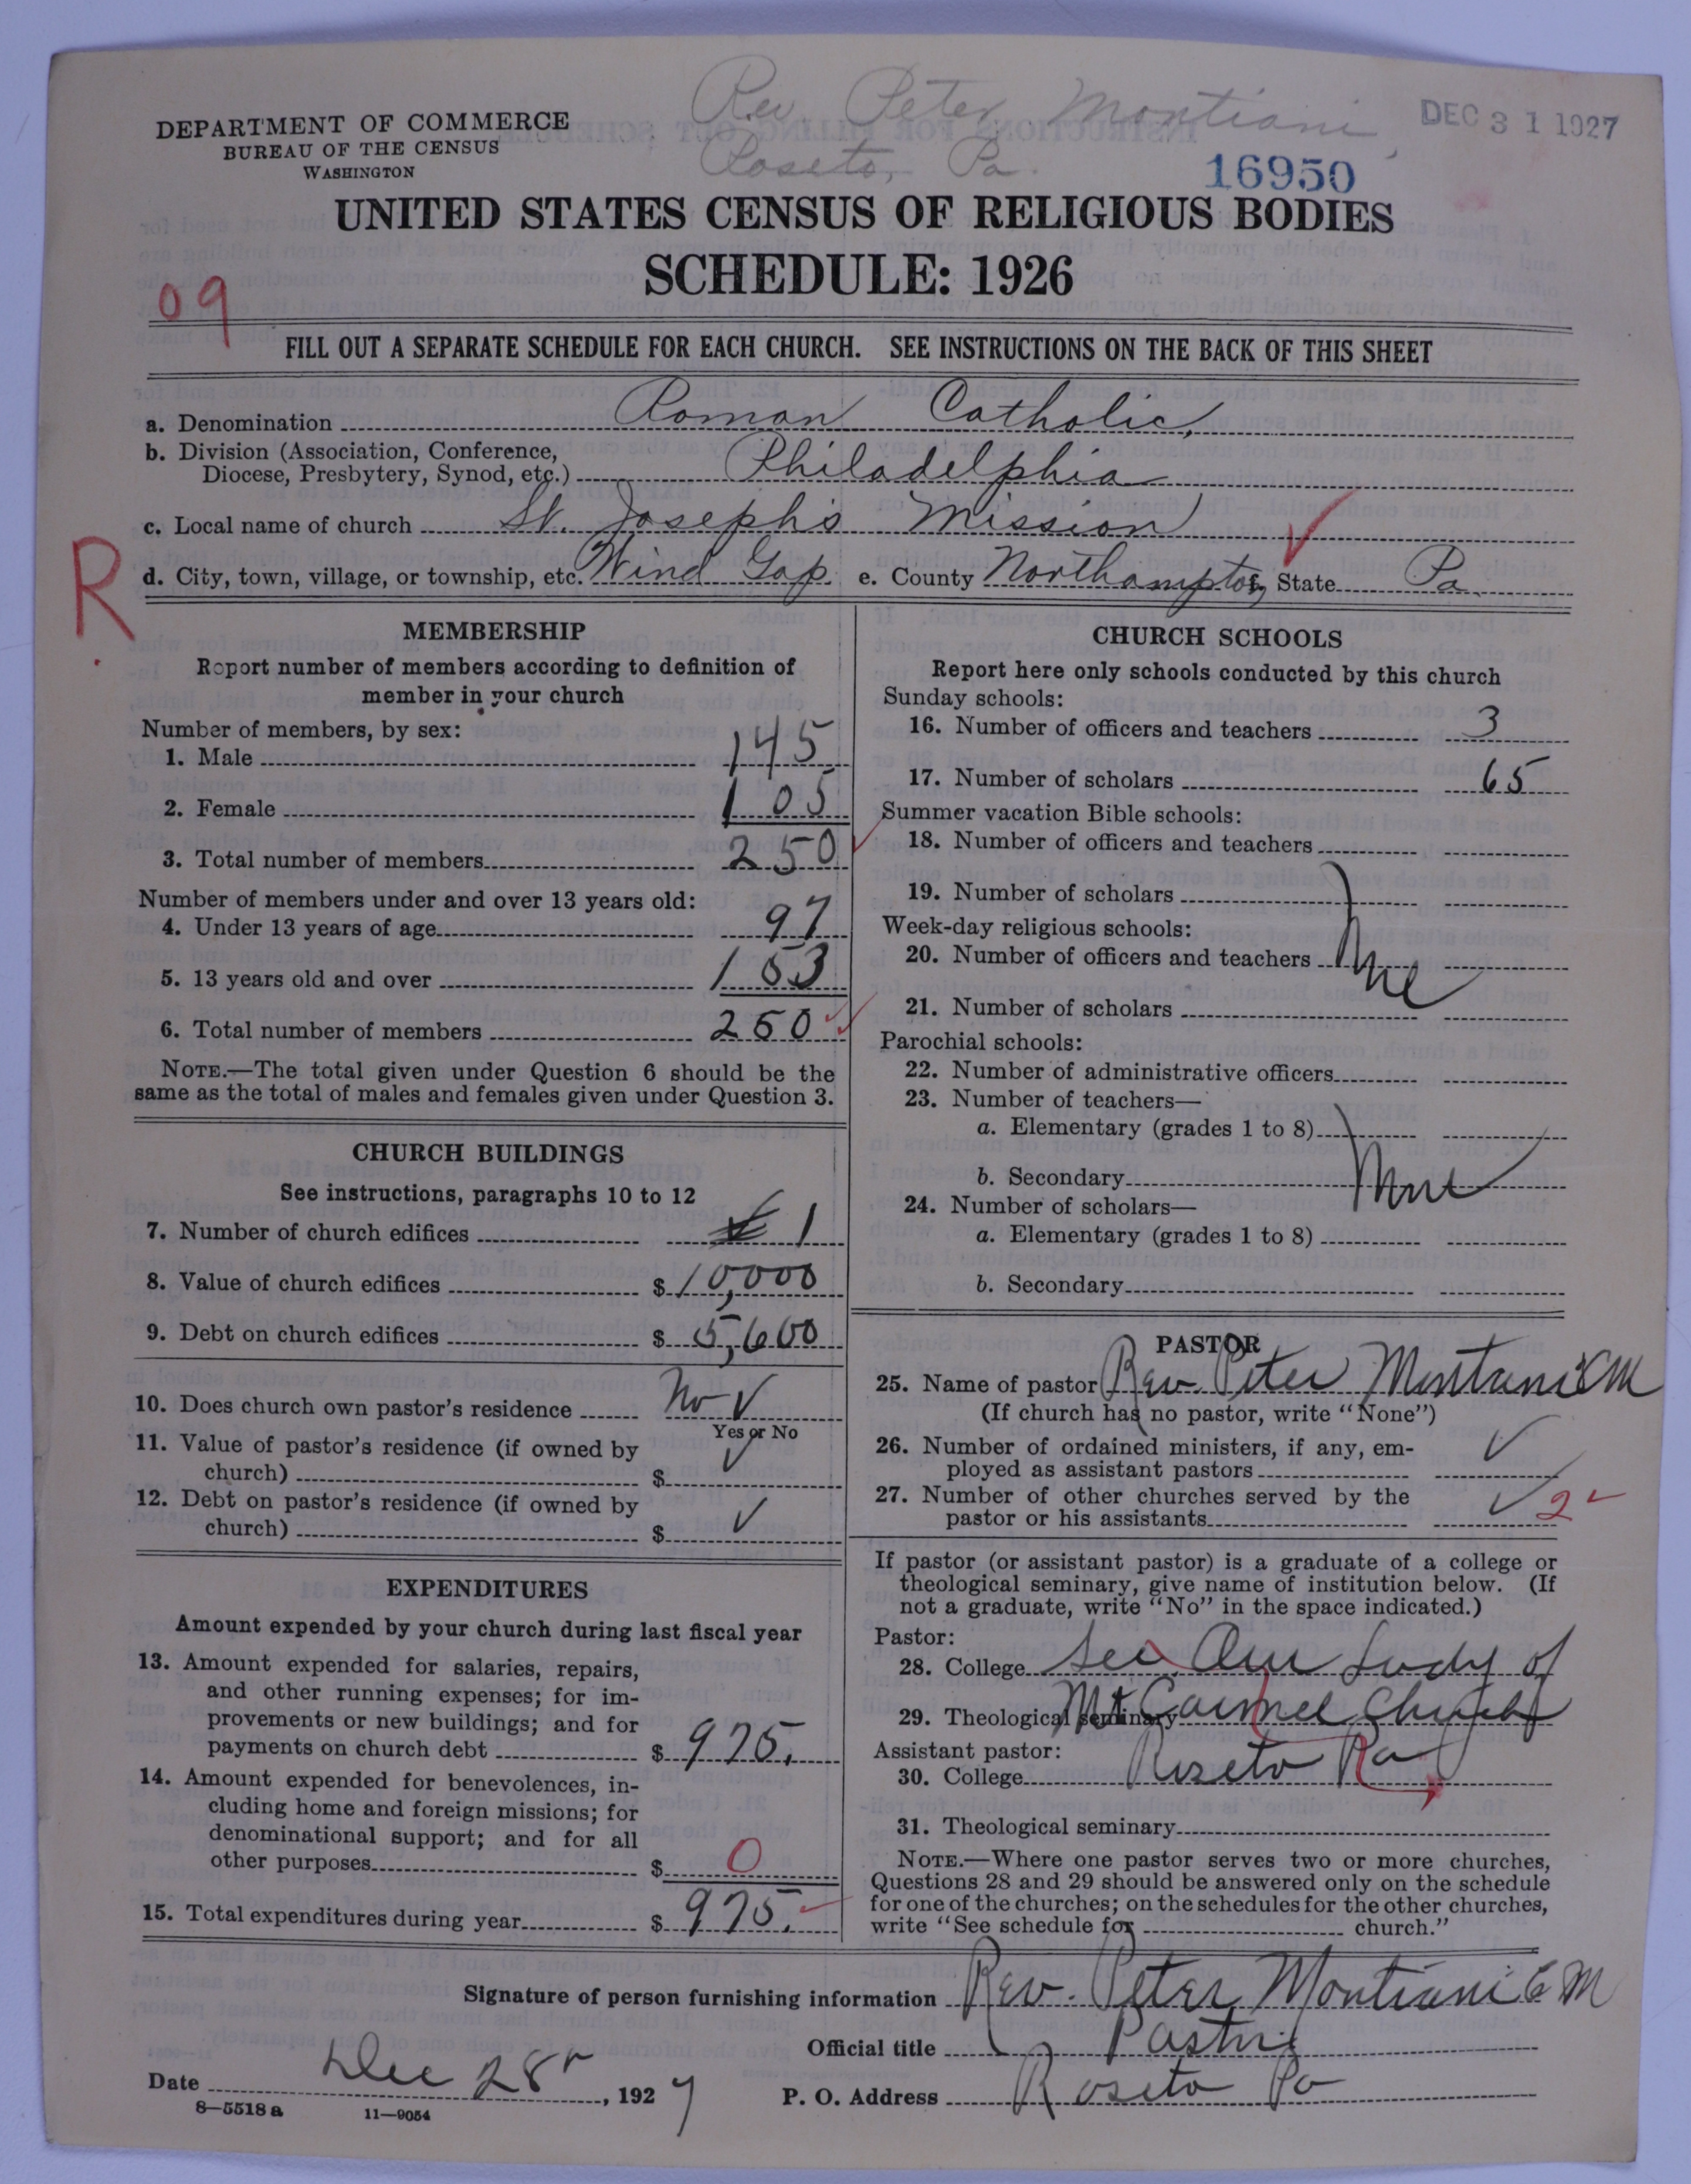 Rev Peter Montiani,
Roseto, Pa.
DEC 31 1927
16950
DEPARTMENT OF COMMERCE
BUREAU OF THE CENSUS
WASHINGTON
UNITED STATES CENSUS OF RELIGIOUS BODIES
SCHEDULE: 1926
09
FILL OUT A SEPARATE SCHEDULE FOR EACH CHURCH. SEE INSTRUCTIONS ON THE BACK OF THIS SHEET
a. Denomination Roman Catholic,
b. Division (Association, Conference,
Diocese, Presbytery, Synod, etc.) Philadelphia
c. Local name of church St. Joseph's Mission
R
d. City, town, village, or township, etc. Wind Gap e. County Northampton, State Pa.
MEMBERSHIP
Report number of members according to definition of
member in your church
Number of members, by sex:
1. Male 145
2. Female 105
3. Total number of members 250
Number of members under and over 13 years old:
4. Under 13 years of age 97
5. 13 years old and over 153
6. Total number of members 250
NOTE.—The total given under Question 6 should be the
same as the total of males and females given under Question 3.
CHURCH BUILDINGS
See instructions, paragraphs 10 to 12
7. Number of church edifices 1
8. Value of church edifices $ 10,000
9. Debt on church edifices $ 5,600
10. Does church own pastor's residence No ✓
Yes or No
11. Value of pastor's residence (if owned by
church) $ ✓
12. Debt on pastor's residence (if owned by
church) $ ✓
EXPENDITURES
Amount expended by your church during last fiscal year
13. Amount expended for salaries, repairs,
and other running expenses; for im-
provements or new buildings; and for
payments on church debt $ 975.
14. Amount expended for benevolences, in-
cluding home and foreign missions; for
denominational support; and for all
other purposes $ 0
15. Total expenditures during year $ 975.
CHURCH SCHOOLS
Report here only schools conducted by this church
Sunday schools:
16. Number of officers and teachers 3
17. Number of scholars 65
Summer vacation Bible schools:
18. Number of officers and teachers
19. Number of scholars
Week-day religious schools:
20. Number of officers and teachers
21. Number of scholars
Parochial schools:
22. Number of administrative officers
23. Number of teachers—
a. Elementary (grades 1 to 8)
b. Secondary None
24. Number of scholars—
a. Elementary (grades 1 to 8)
b. Secondary
PASTOR
25. Name of pastor Rev. Peter Montiani CM
(If church has no pastor, write "None")
26. Number of ordained ministers, if any, em-
ployed as assistant pastors ✓
27. Number of other churches served by the
pastor or his assistants ✓ 2
If pastor (or assistant pastor) is a graduate of a college or
theological seminary, give name of institution below. (If
not a graduate, write "No" in the space indicated.)
Pastor:
28. College See Our Lady of
29. Theological seminary Mt Carmel Church
Assistant pastor:
30. College Roseto Pa
31. Theological seminary
NOTE.—Where one pastor serves two or more churches,
Questions 28 and 29 should be answered only on the schedule
for one of the churches; on the schedules for the other churches,
write "See schedule for church."
Signature of person furnishing information Rev. Peter Montiani CM
Official title Pastor
Date Dec 28, 1927 P. O. Address Roseto Pa
8—5518a 11—9054